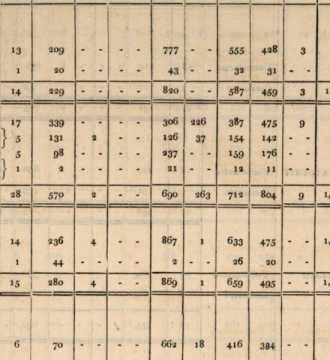 13 209 - - - - 777 - - 555 428 3
1 20 - - - - 43 - - 32 31 - -
14 229 - - - - 820 - - 587 459 3 1
17 339 - - - - 306 226 387 475 9
} 5 131 2 - - 126 37 154 142 - -
5 98 - - - - 237 - - 159 176 - -
} 1 2 - - - - 21 - - 12 11 - -
28 570 2 - - 690 263 712 804 9 14
14 236 4 - - 867 1 633 475 - - 14
1 44 - - - - 2 - - 26 20 - -
15 280 4 - - 869 1 659 495 - - 14
6 70 - - - - 662 18 416 384 - -